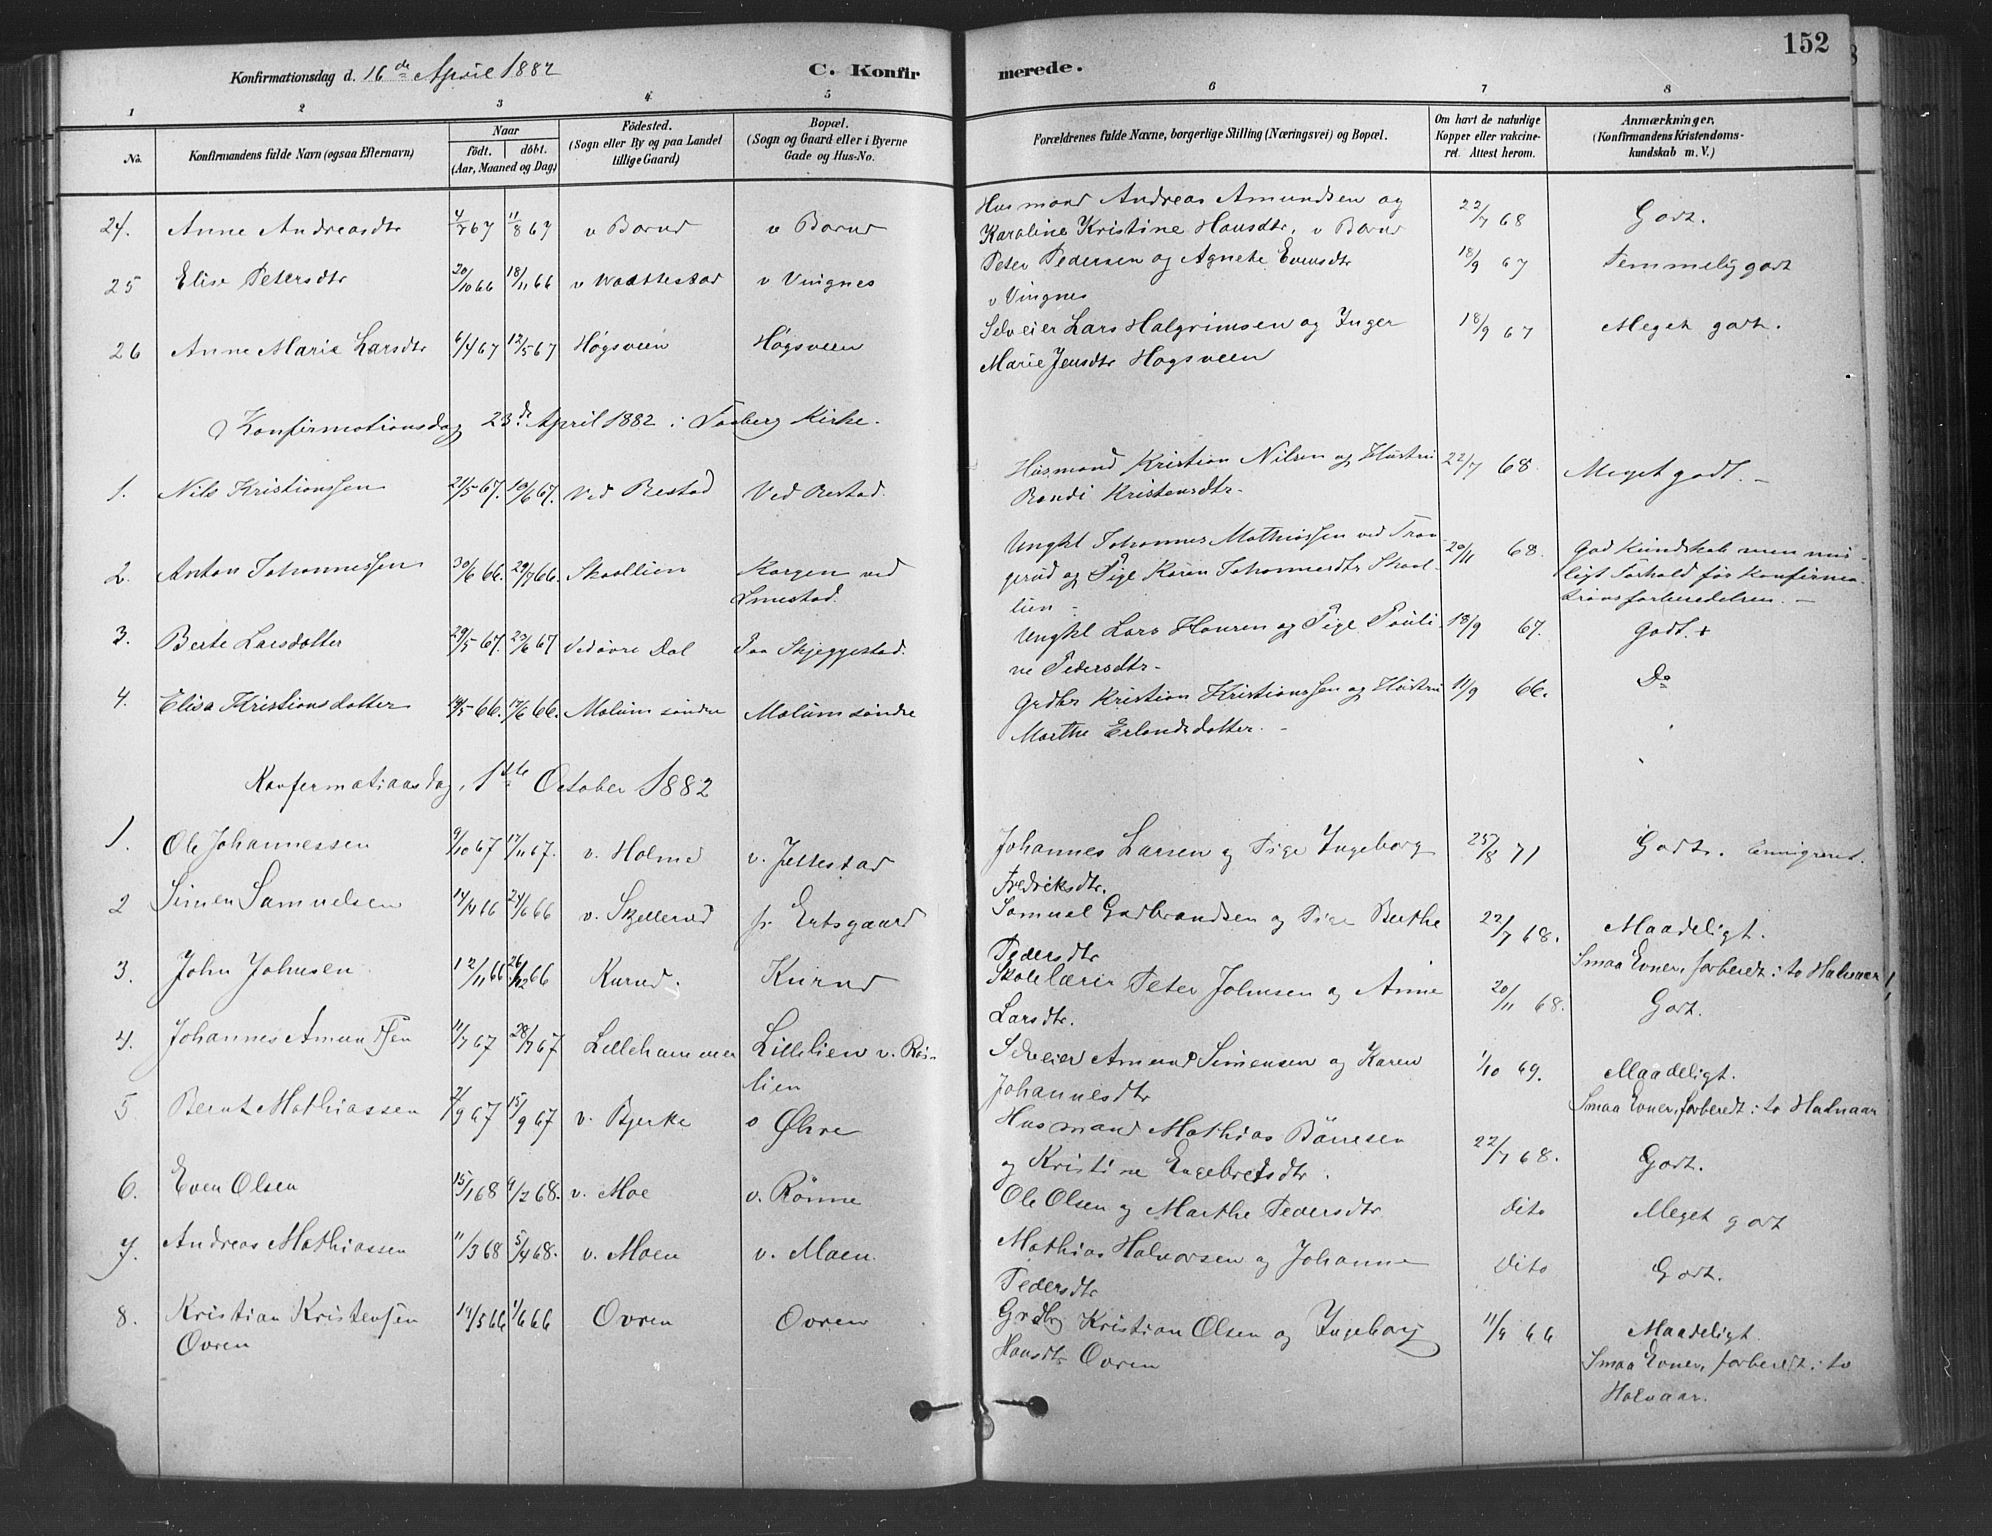 152
Konfirmationsdag d. 16de April 1882
C. Konfirmerede.
1 2 3 4 5 6 7 8
No. Konfirmandens fulde Navn (ogsaa Efternavn) Naar födt. döbt. (Aar, Maaned og Dag) Födested. (Sogn eller By og paa Landet tillige Gaard) Bopæl. (Sogn og Gaard eller i Byerne Gade og Hus-No. Forældrenes fulde Navne, borgerlige Stilling (Næringsvei) og Bopæl. Om havt de naturlige Kopper eller vakcineret. Attest herom. Anmærkninger, (Konfirmandens Kristendomskundskab m. V.)
24. Anne Andreasdtr 4/7 67 11/8 67 v Borud v Borud Husmand Andreas Amundsen og
Karoline Kristine Hansdtr, v Borud 22/7 68 Godt.
25 Elise Petersdtr 20/10 66 18/11 66 v v Vingnes Peter Pedersen og Agnete Evensdtr
v Vingnes 18/9 67 Temmelig godt
26 Anne Marie Larsdtr 6/4 67 12/5 67 Høgsveen Høgsveen Selveier Lars Halgrimsen og Inger
Marie Jensdtr Høgsveen 18/9 67 Meget godt.
Konfirmationsdag 23de April 1882 i Faaberg Kirke.
1. Nils Kristianssen 21/5 67. 10/6 67. Ved Bestad Ved Bestad. Husmand Kristian Nilsen og Hustru
Randi Kristensdtr. 22/7 68 Meget godt. –
2. Anton Johannessen 30/6 66. 29/7 66. Skaallien Korgen ved
Smestad. Ungkl Johannes Mathiassen ved
gerud og Pige Karen Johannesdtr Skaal-
lien – 20/11 68. God Kundskab men
ligt Forhold før Konfirma-
tionsforberedelsen. –
3. Berte Larsdatter 29/5 67. 23/6 67 Ved øvre Dal Paa Skjeggestad. Ungkl Lars Hansen og Pige Pauli-
ne Pedersdtr – 18/9 67. Godt. +
4. Elisa Kristiansdatter 14/5 66. 17/6 66. Mælum søndre Mælum søndre Grdbr Kristian Kristianssen og Hustru
Marthe Erlandsdatter. – 11/9 66. Do
Konfermationsdag, 1ste October 1882
1. Ole Johannessen 9/10 67 17/11 67. v. Holme v. Jettestad Johannes Larsen og Pige Ingeborg
Fredriksdtr. 25/8 71 Godt. Emigreret.
2 Simen Samuelsen 14/4 66 24/6 66 v. Skjellerud fr. Ertsgaard Samuel Gudbrandsen og Pige Berthe
Pedersdtr 22/7 68. Maadeligt.
Smaa Evner, forberedt i to Halvaar
3. John Johnsen 12/11 66 26/12 66 Kurud. Kurud Skolelærer Peter Johnsen og Anne
Larsdtr. 20/11 68. Godt.
4. Johannes Amundsen 11/7 67 28/7 67 Lillehammer Lillelien v. Roi-
lien Selveier Amund Simensen og Karen
Johannesdtr 1/10 69. Maadeligt.
Smaa Evner, forberedt i to Halvaar
5. Bernt Mathiassen 2/9 67 15/9 67 v. Bjerke v Øhre Husmand Mathias
og Kristine Engebretsdtr. 22/7 68. Godt.
6. Even Olsen 15/1 68 9/2 68. v. Moe v. Rønne Ole Olsen og Marthe Pedersdtr Dito Meget godt
7. Andreas Mathiassen 11/3 68 5/4 68. v. Moen v. Moen Mathias Halvorsen og Johanne
Pedersdtr Dito Godt.
8. Kristian Kristensen
Ovren 19/5 66 1/6 66 Ovren Ovren Grdbr Kristian Olsen og Ingeborg
Hansdtr Ovren 11/9 66 Maadeligt.
Smaa Evner, forberedt i to
Halvaar.